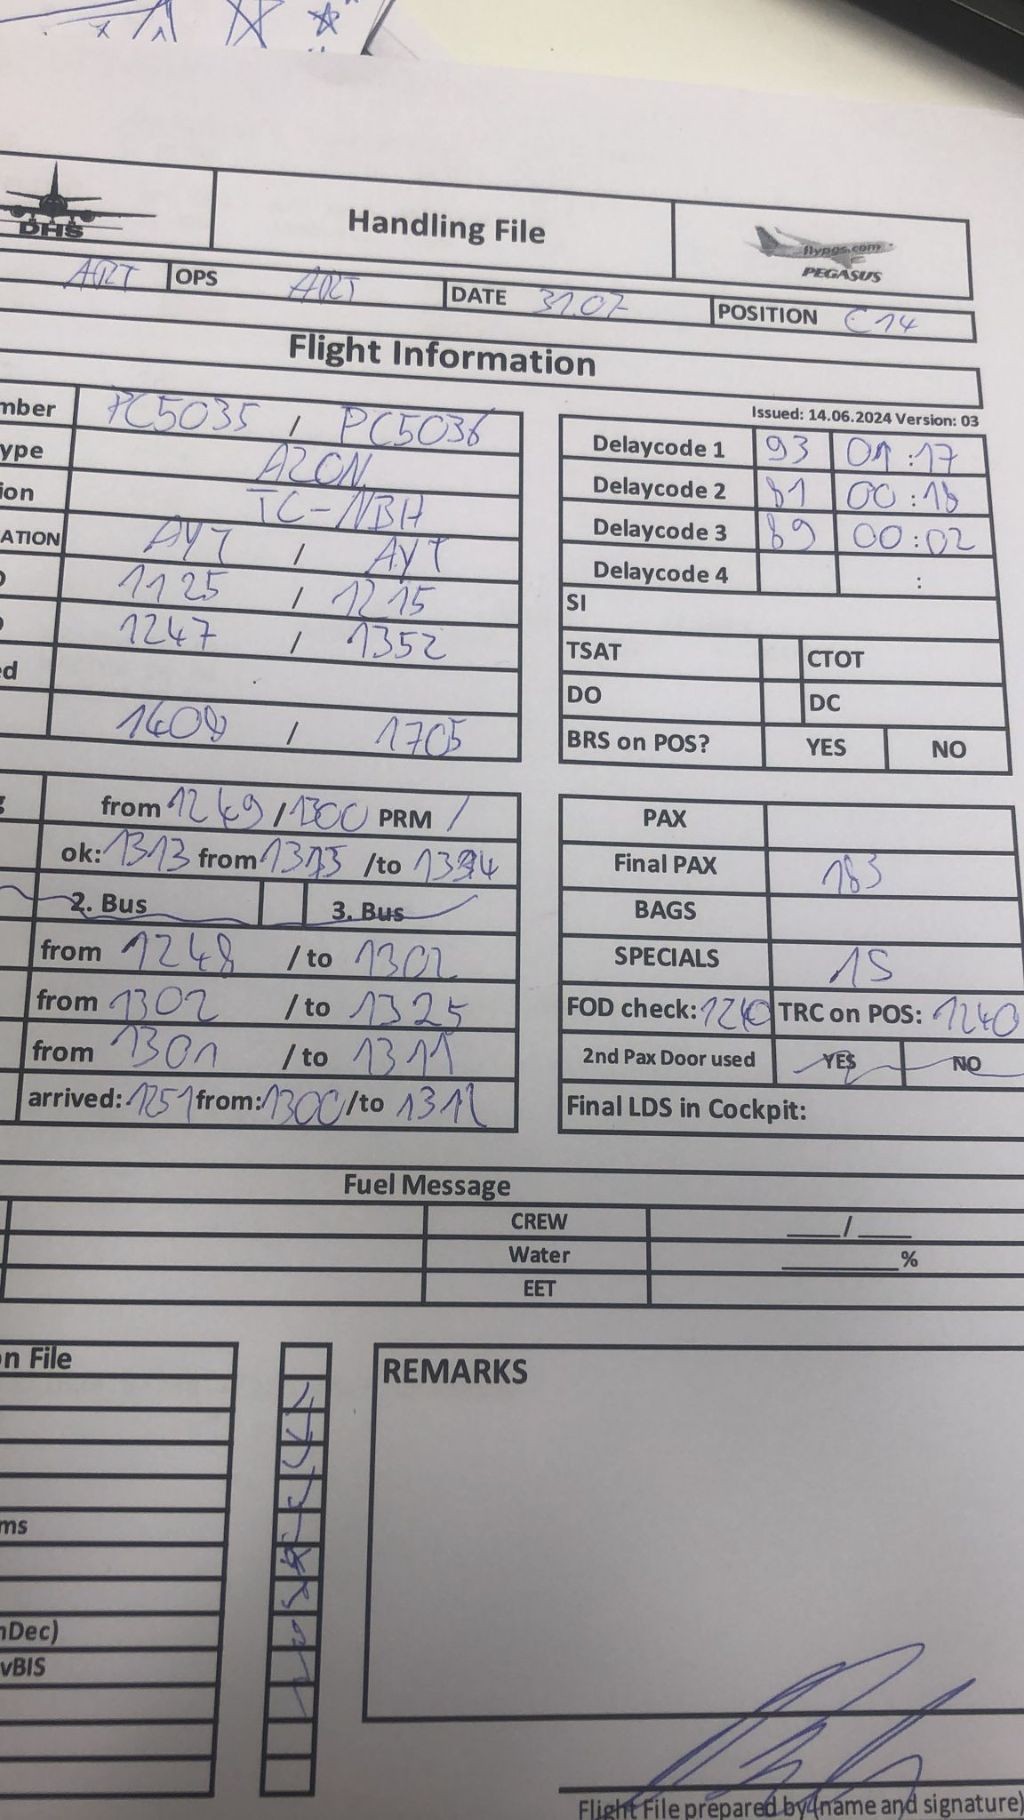 DHS
Handling File
flypgs.com
PEGASUS
ART OPS ART DATE 31.07 POSITION C14
Flight Information
Issued: 14.06.2024 Version: 03
mber PC5035 / PC5036
ype A20N
ion TC-NBH
ATION AYT / AYT
1125 / 1215
1247 / 1352
ed
/ 1705
Delaycode 1 93 01:17
Delaycode 2 81 00:18
Delaycode 3 89 00:02
Delaycode 4 :
SI
TSAT CTOT
DO DC
BRS on POS? YES NO
from 1249 / 1300 PRM /
ok: 1313 from /to
2. Bus 3. Bus
from 1248 / to 1302
from 1302 / to 1325
from 1301 / to 1311
arrived: 1251 from: 1300 /to 1312
PAX
Final PAX 183
BAGS
SPECIALS
FOD check: 1240 TRC on POS: 1240
2nd Pax Door used YES NO
Final LDS in Cockpit:
Fuel Message
CREW ____/____
Water __________%
EET
n File
ms
nDec)
vBIS
REMARKS
Flight File prepared by (name and signature)